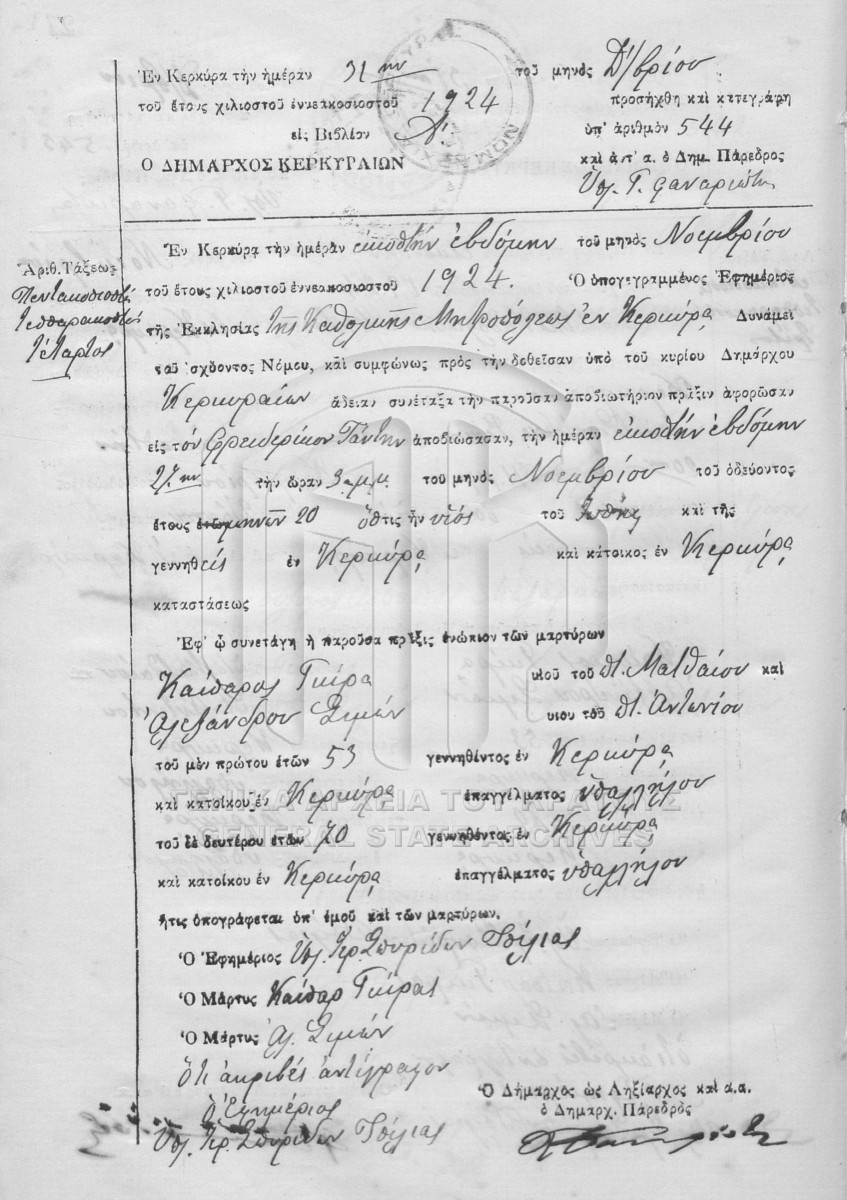 Ἐν Κερκύρᾳ τὴν ἡμέραν 31ην τοῦ μηνὸς Δ/βρίου
τοῦ ἔτους χιλιοστοῦ ἐννεακοσιοστοῦ 1924 προσήχθη καὶ κατεγράφη
εἰς Βιβλίον Α'. ὑπ' ἀριθμὸν 544
Ο ΔΗΜΑΡΧΟΣ ΚΕΡΚΥΡΑΙΩΝ καὶ ἀντ' α. ὁ Δημ. Πάρεδρος
Ὑπ. Γ. Φαναριώτης
Ἀριθ. Τάξεως
Πεντακοσιοστὸς
τεσσαρακοστὸς
τέταρτος
Ἐν Κερκύρᾳ τὴν ἡμέραν εἰκοστὴν ἑβδόμην τοῦ μηνὸς Νοεμβρίου
τοῦ ἔτους χιλιοστοῦ ἐννεακοσιοστοῦ 1924. Ὁ ὑπογεγραμμένος Ἐφημέριος
τῆς Ἐκκλησίας τῆς Καθολικῆς Μητροπόλεως ἐν Κερκύρᾳ Δυνάμει
τοῦ ἰσχύοντος Νόμου, καὶ συμφώνως πρὸς τὴν δοθεῖσαν ὑπὸ τοῦ κυρίου Δημάρχου
Κερκυραίων ἄδειαν συνέταξα τὴν παροῦσαν ἀποβιωτήριον πρᾶξιν ἀφορῶσαν
εἰς τὸν Φρειδερίκον Τάντην ἀποβιώσασαν, τὴν ἡμέραν εἰκοστὴν ἑβδόμην
27ην τὴν ὥραν 3 μ.μ. τοῦ μηνὸς Νοεμβρίου τοῦ ὁδεύοντος
ἔτους ἐτῶν μηνῶν 20 ὅστις ἦν υἱὸς τοῦ καὶ τῆς
γεννηθεὶς ἐν Κερκύρᾳ καὶ κάτοικος ἐν Κερκύρᾳ
καταστάσεως
Ἐφ' ᾧ συνετάγη ἡ παροῦσα πρᾶξις ἐνώπιον τῶν μαρτύρων
Καίσαρος Γκίρα υἱοῦ τοῦ π. Ματθαίου καὶ
Ἀλεξάνδρου Σιμὼν υἱοῦ τοῦ π. Ἀντωνίου
τοῦ μὲν πρώτου ἐτῶν 53 γεννηθέντος ἐν Κερκύρᾳ
καὶ κατοίκου ἐν Κερκύρᾳ ἐπαγγέλματος ὑπαλλήλου
τοῦ δὲ δευτέρου ἐτῶν 70 γεννηθέντος ἐν Κερκύρᾳ
καὶ κατοίκου ἐν Κερκύρᾳ ἐπαγγέλματος ὑπαλλήλου
ἥτις ὑπογράφεται ὑπ' ἐμοῦ καὶ τῶν μαρτύρων.
Ὁ Ἐφημέριος Ὑπ. Ἱερ. Σπυρίδων
Ὁ Μάρτυς Καίσαρ Γκίρας
Ὁ Μάρτυς Ἀλ. Σιμών
Ὅτι ἀκριβὲς ἀντίγραφον
Ὁ Ἐφημέριος
Ὑπ. Ἱερ. Σπυρίδων
Ὁ Δήμαρχος ὡς Ληξίαρχος καὶ α.α.
ὁ Δημαρχ. Πάρεδρος
ΓΕΝΙΚΑ ΑΡΧΕΙΑ ΤΟΥ ΚΡΑΤΟΥΣ
GENERAL STATE ARCHIVES